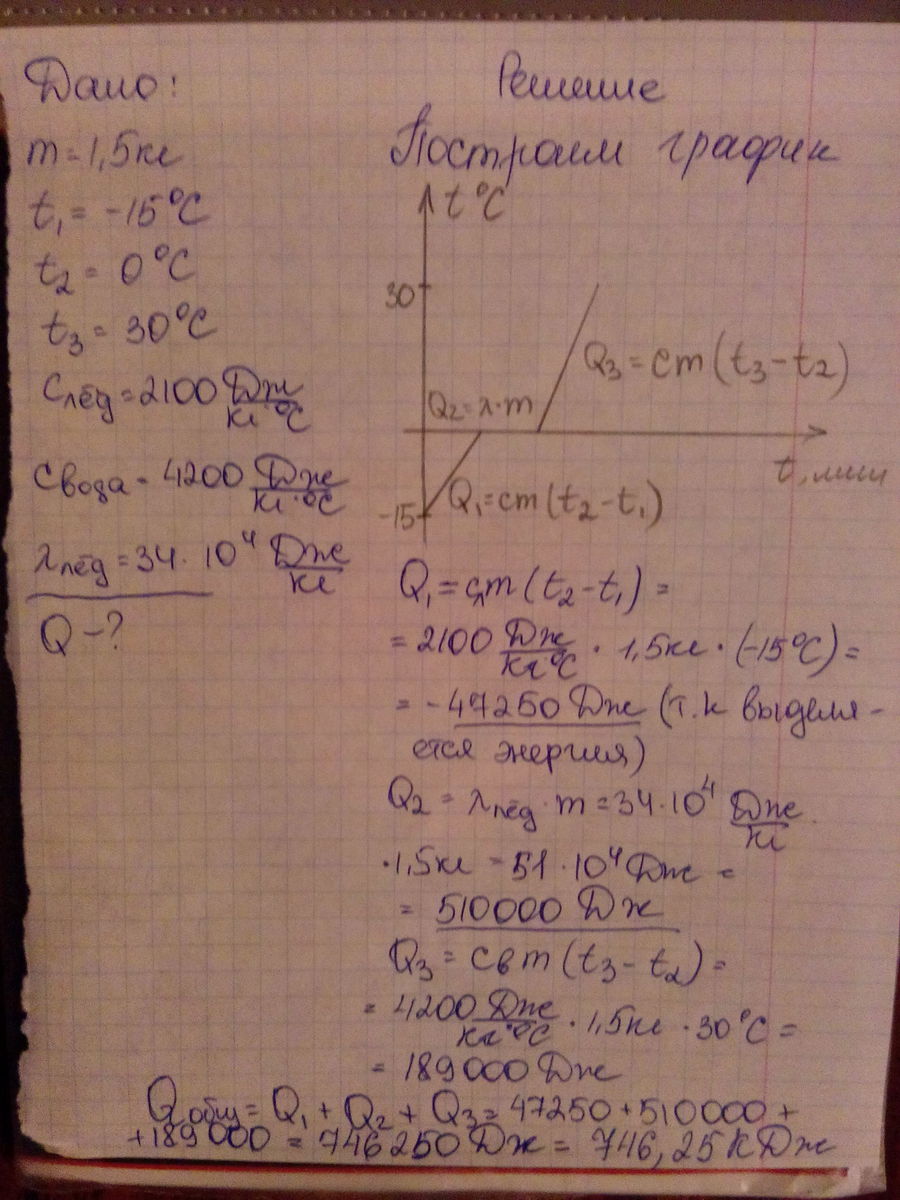 Дано:
m = 1,5кг
t₁ = -15°C
t₂ = 0°C
t₃ = 30°C
Cлёд = 2100 Дж/кг·°C
Cвода = 4200 Дж/кг·°C
λлёд = 34 · 10⁴ Дж/кг
Q - ?
Решение
Построим график
t°C
30
Q₃ = cm(t₃ - t₂)
Q₂ = λ·m
t, мин
-15
Q₁ = cm(t₂ - t₁)
Q₁ = cлm(t₂ - t₁) =
= 2100 Дж/кг°C · 1,5кг · (-15°C) =
= -47250 Дж (т.к выделя-
ется энергия)
Q₂ = λлёд · m = 34·10⁴ Дж/кг ·
·1,5кг = 51 · 10⁴ Дж =
= 510000 Дж
Q₃ = cвm(t₃ - t₂) =
= 4200 Дж/кг·°C · 1,5кг · 30°C =
= 189000 Дж
Qобщ = Q₁ + Q₂ + Q₃ = 47250 + 510000 +
+ 189000 = 746250 Дж = 746,25 кДж